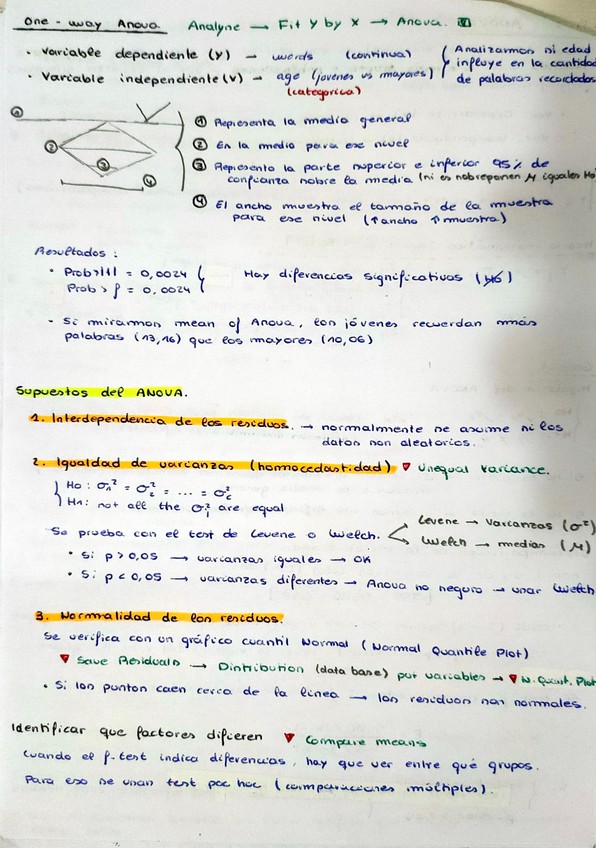 One-way Anova. Analyne → Fit Y by X → Anova. ▼
• Variable dependiente (Y) → words (continua)
• Variable independiente (V) → age (jovenes vs mayores)
(categorica)
Analizamos si edad
influye en la cantidad
de palabras recordadas
① Representa la media general
② En la media para ese nivel
③ Representa la parte superior e inferior 95% de
confianza sobre la media (ni es nobreponen μ iguales Ho
④ El ancho muestra el tamaño de la muestra
para ese nivel (↑ancho ↑muestra)
① ② ③ ④
Resultados:
• Prob>|t| = 0,0024
Prob > f = 0,0024
Hay diferencias significativas (H0)
- Si miramos mean of Anova, los jóvenes recuerdan más
palabras (13,16) que los mayores (10,06)
Supuestos del ANOVA.
1. Interdependencia de los residuos. → normalmente se asume si los
datos son aleatorios.
2. Igualdad de varianzas (homocedastidad) ▼ Unequal Variance.
Ho: σ₁² = σ₂² = ... = σc²
H1: not all the σj² are equal
Se prueba con el test de Levene o Welch.
Levene → Varianzas (σ²)
Welch → medias (μ)
• Si p > 0,05 → varianzas iguales → OK
• Si p < 0,05 → varianzas diferentes → Anova no seguro → usar Welch
3. Normalidad de los residuos.
Se verifica con un gráfico cuantil Normal (Normal Quantile Plot)
▼ Save Residuals → Distribution (data base) put variables → ▼ N. Quant. Plot
• Si los puntos caen cerca de la linea → los residuos son normales.
Identificar que factores difieren ▼ Compare means
Cuando el f-test indica diferencias, hay que ver entre qué grupos.
Para eso se usan test poc hoc (comparaciones múltiples).